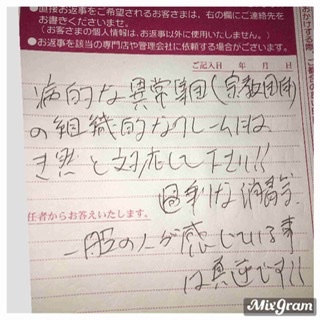 ●直接お返事をご希望されるお客さまは、右の欄にご連絡先を
お書きくださいませ。
(お客さまの個人情報は、お返事以外に使用いたしません。)
●お返事を該当の専門店や管理会社に依頼する場合がございます。
ご記入日 年 月 日
病的な異常集団(宗教団体)
の組織的なクレームには
き然と対応して下さい!!
過剰な消毒
任者からお答えいたします。
一般の人が感じている事
は真逆です!!
MixGram